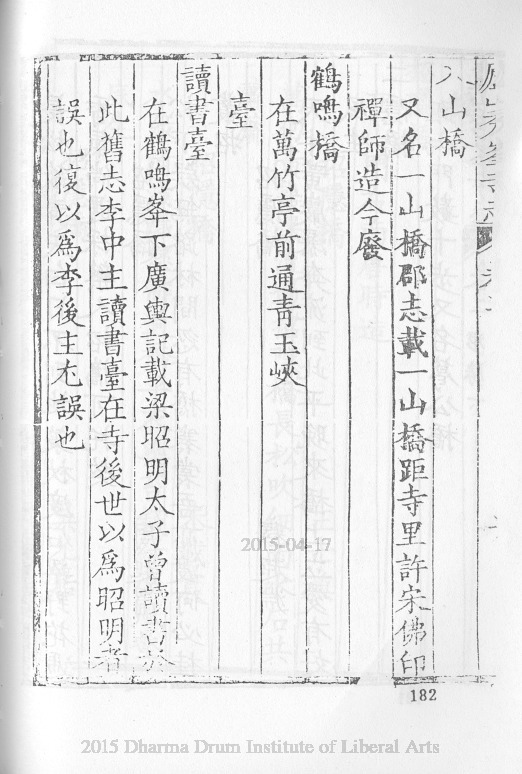 山橋
又名一山橋郡志載一山橋距寺里許宋佛印
禪師造今廢
鶴鳴橋
在萬竹亭前通青玉峽
臺
讀書臺
在鶴鳴峯下廣輿記載梁昭明太子曾讀書於
此舊志李中主讀書臺在寺後世以爲昭明者
誤也復以爲李後主尤誤也
182
2015-04-17
2015 Dharma Drum Institute of Liberal Arts